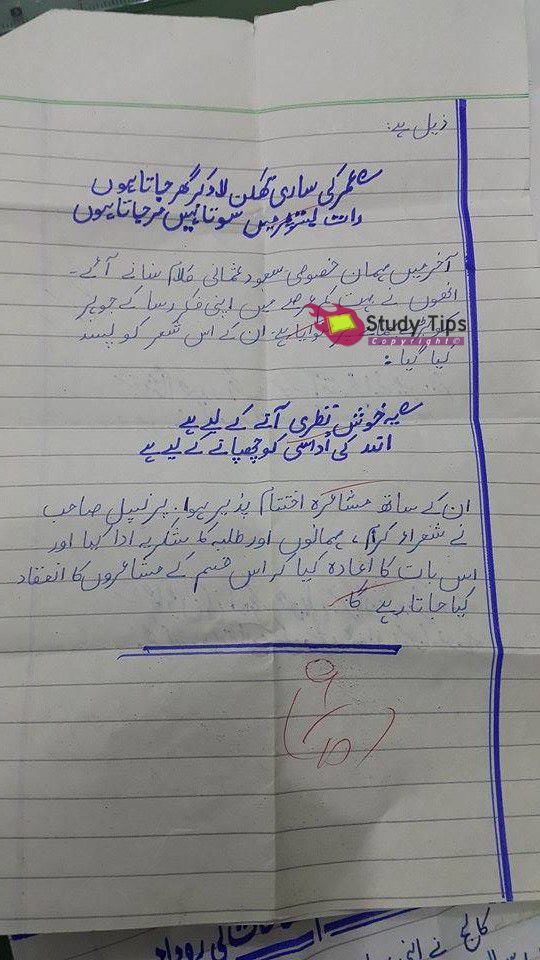 ذیل ہے:
عمر کی ساری تھکن لاد کر گھر جاتا ہوں
رات بستر میں سوتا نہیں مر جاتا ہوں
آخر میں مہمان خصوصی سعود عثمانی کلام سنانے آئے۔
انھوں نے بہت کم عرصے میں اپنی فکر رسا کے جوہر
ہے. ان کے اس شعر کو پسند
کیا گیا:
یہ خوش نظری آنے کے لیے ہے
اندر کی اُداسی کو چھپانے کے لیے ہے
ان کے ساتھ مشاعرہ اختتام پذیر ہوا. پرنسپل صاحب
نے شعراء کرام، مہمانوں اور طلبہ کا شکریہ ادا کیا اور
اس بات کا اعادہ کیا کہ اس قسم کے مشاعروں کا انعقاد
کیا جاتا رہے گا.
9/10
Study Tips
Copyright©
کالج نے اپنی
کی روداد